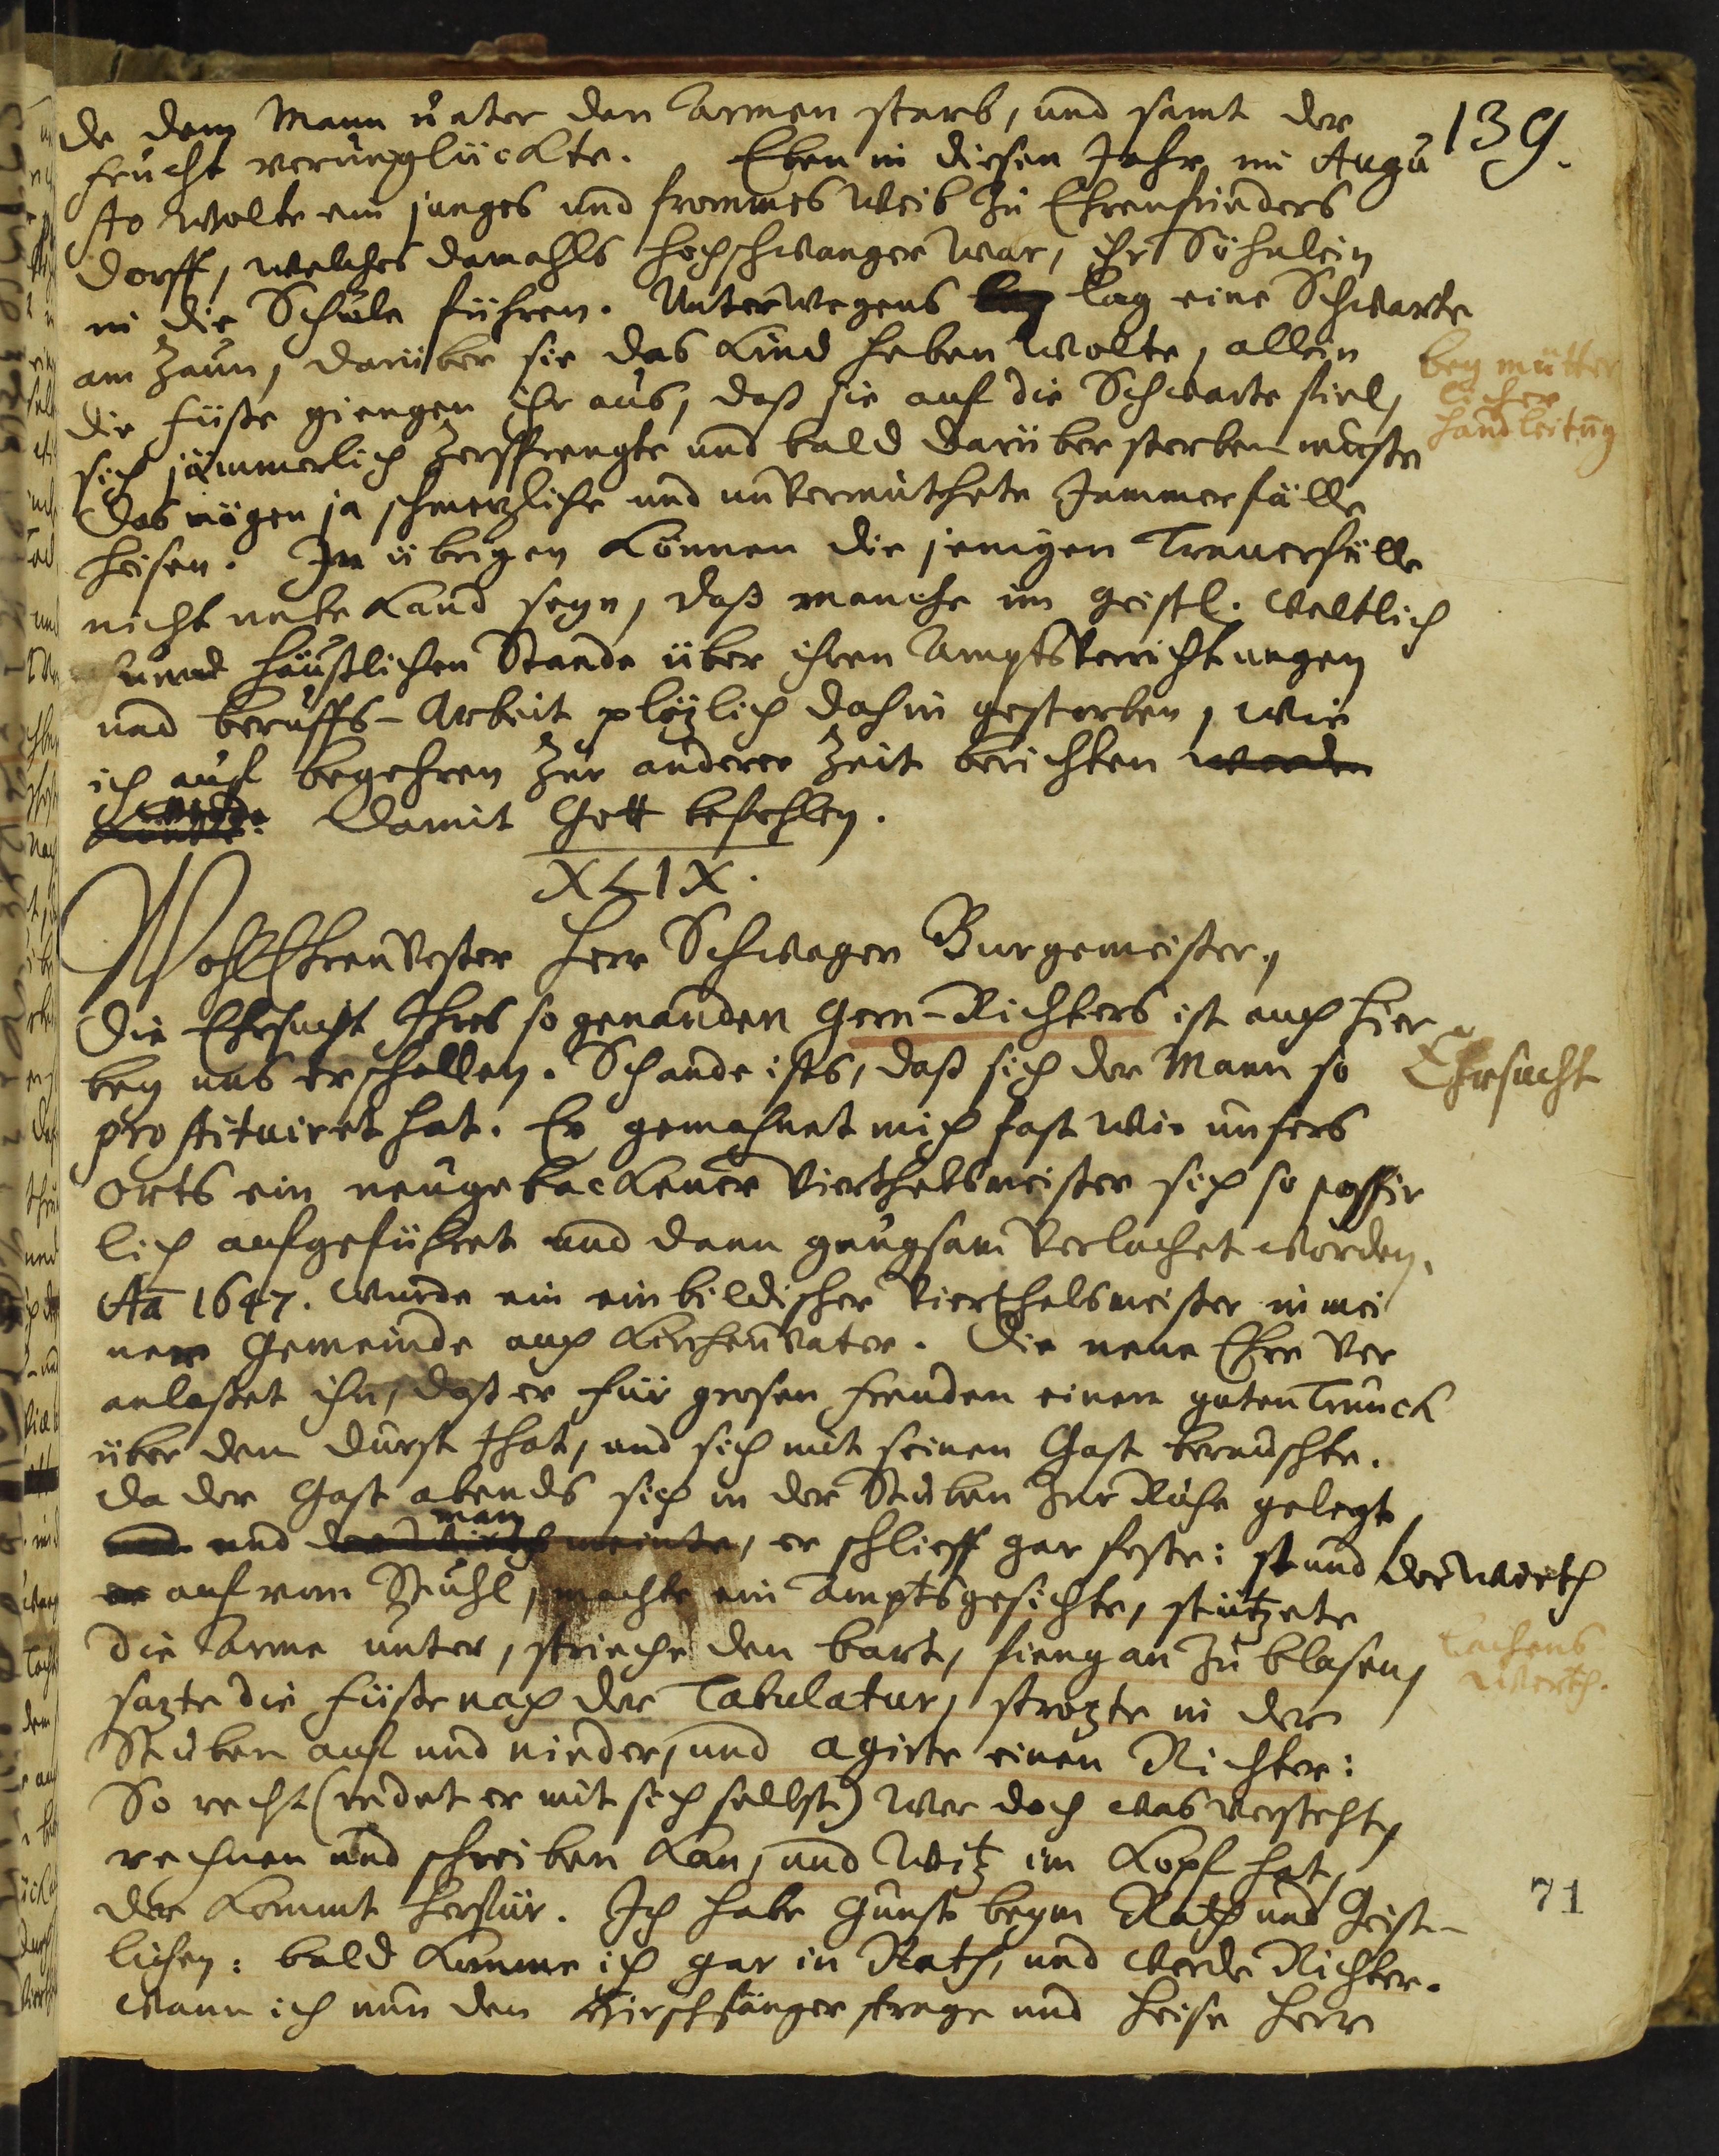 139.
de dem Mann unter den Armen starb, und samt der
frucht verunglückte. Eben in diesen Jahr im Augu
sto wolte ein junges und frommes Weib zu Ehrenfrieders
dorff, welches damahls hochschwanger war, ihr Söhnlein
in die Schule führen. Unterwegens lag eine Schwarte
am Zaun, darüber sie das Kind heben wolte, allein
die füße giengen ihr aus, daß sie auf die Schwarte fiel,
bey mütter
licher
handleitung
sich jämmerlich zersprengte und bald darüber sterben muste
Das mögen ja schmerzliche und unvermuthete Jammerfälle
heisen. Im übrigen können die jenigen Trauerfälle
nicht unbekand seyn, daß manche im geistl. weltlich
und häußlichen Stande über ihren Amptsverrichtungen
und beruffs-Arbeit plözlich dahin gestorben, wie
ich auf begehren zur anderer Zeit berichten werden
könte. Damit Gott befohlen.
XLIX.
WohlEhrenvester Herr Schwager Burgemeister,
Die Ehrsucht Ihres so genanden Gern-Richters ist auch hier
bey uns erschollen. Schande ists, daß sich der Mann so
Ehrsucht
prostituiret hat. Er gemahnet mich fast wie unsers
Orts ein neugebackener Vierthelsmeister sich so possir
lich aufgeführet und dann gnugsam verlachet worden.
Ao 1647. wurde ein einbildischer Vierthelsmeister in mei
ner Gemeinde auch Kirchenvater. Die neue Ehre ver
anlaßet ihn, daß er für grosen freuden einen guten Trunck
über dem Durst that, und sich mit seinen Gast berauschte.
Da der Gast abends sich in der Stuben zur Ruhe gelegt
man
und und der Wirth meinte, er schlieff gar feste: stund der Wirth
er auf vom Stuhl, machte ein Amptsgesichte, stützete
die Arme unter, strieche den bart, fieng an zu blasen,
Lachens
werth.
sazte die füße nach der Tabulatur, strozte in der
Stuben auf und nieder, und agirte einen Richter:
So recht (redet er mit sich selbst) wer doch was versteht,
rechnen und schreiben kan, und Witz im Kopf hat,
der kommt herfür. Ich habe Gunst beym Rath und Geist-
lichen: bald komme ich gar in Rath, und werde Richter.
Wann ich nun den Hirschfänger trage und heise Herr
71